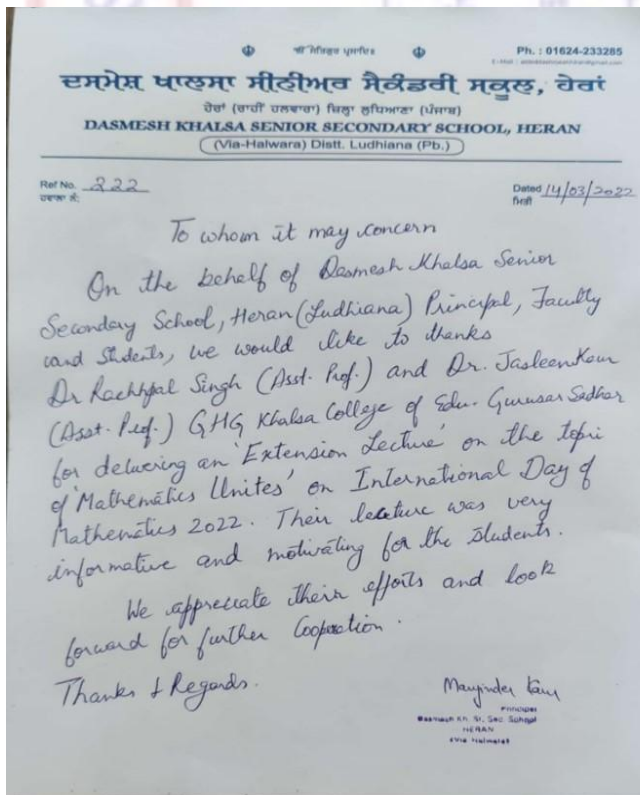 ੴ ਸਤਿਗੁਰ ਪ੍ਰਸਾਦਿ॥
Ph. : 01624-233285
ਦਸਮੇਸ਼ ਖਾਲਸਾ ਸੀਨੀਅਰ ਸੈਕੰਡਰੀ ਸਕੂਲ, ਹੇਰਾਂ
ਹੇਰਾਂ (ਰਾਹੀਂ ਹਲਵਾਰਾ) ਜ਼ਿਲ੍ਹਾ ਲੁਧਿਆਣਾ (ਪੰਜਾਬ)
DASMESH KHALSA SENIOR SECONDARY SCHOOL, HERAN
(Via-Halwara) Distt. Ludhiana (Pb.)
Ref No. 222
ਹਵਾਲਾ ਨੰ:
Dated 14/03/2022
ਮਿਤੀ
To whom it may concern
On the behalf of Dasmesh Khalsa Senior
Secondary School, Heran (Ludhiana) Principal, Faculty
and Students, we would like to thanks
Dr Rachhpal Singh (Asst. Prof.) and Dr. Jasleen Kaur
(Asst. Prof.) GHG Khalsa College of Edu. Gurusar Sadhar
for delivering an 'Extension Lecture' on the topic
of 'Mathematics Unites' on International Day of
Mathematics 2022. Their lecture was very
informative and motivating for the students.
We appreciate their efforts and look
forward for further Cooperation.
Thanks & Regards.
Manjinder Kaur
Principal
Dasmesh Kh. Sr. Sec. School
HERAN
(Via Halwara)